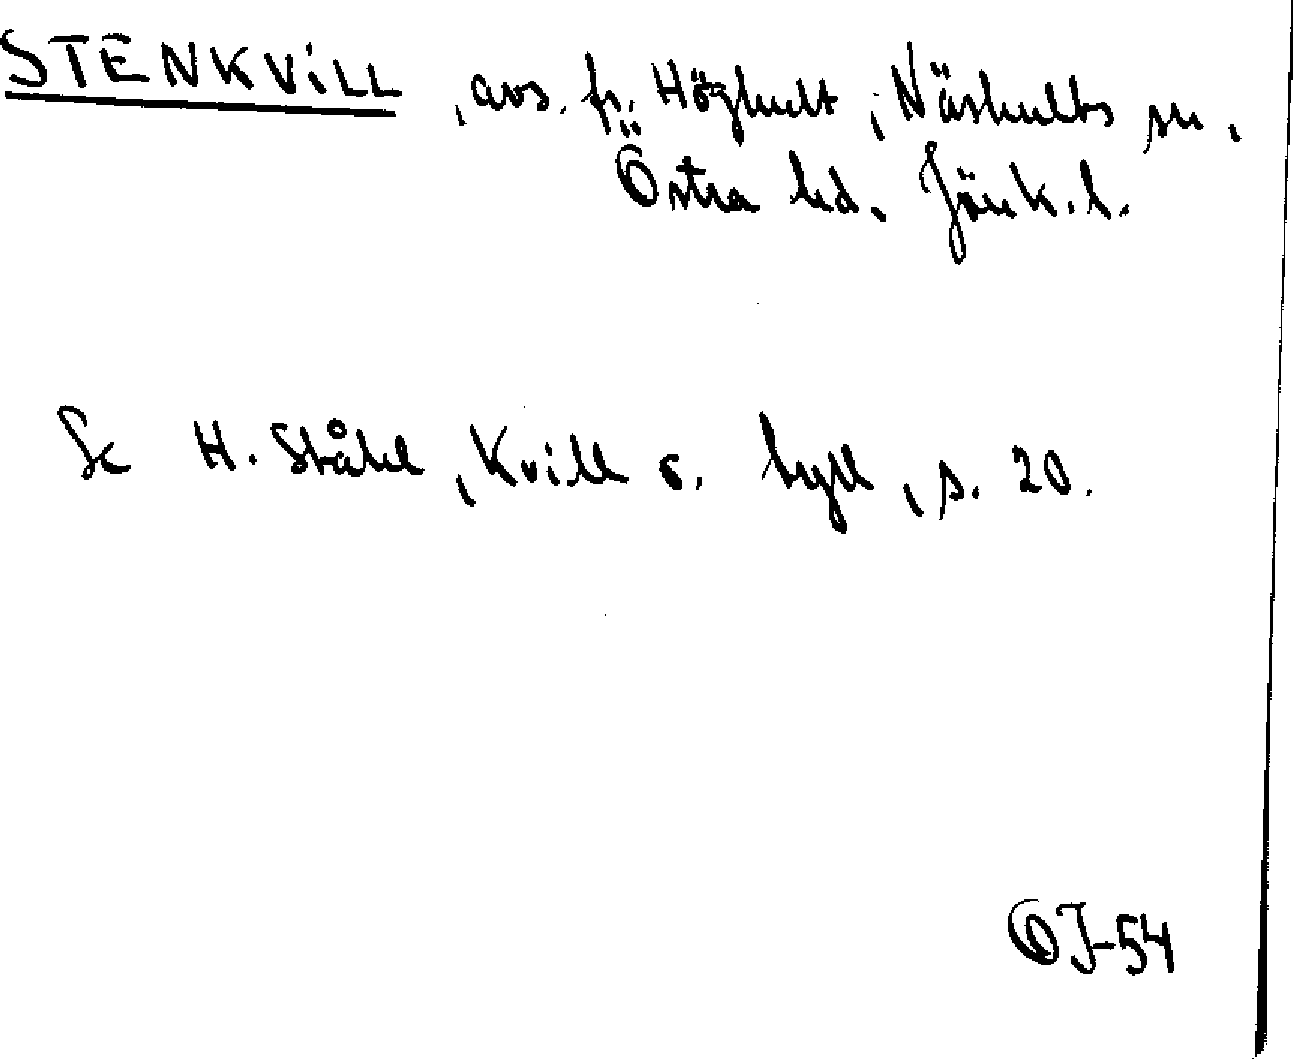 STENKVILL, avs. fr. Höghult, Näshults sn,
Östra hd. Jönk. l.
Se H. Ståhl, Kvill o. tyll, s. 20.
OJ-54